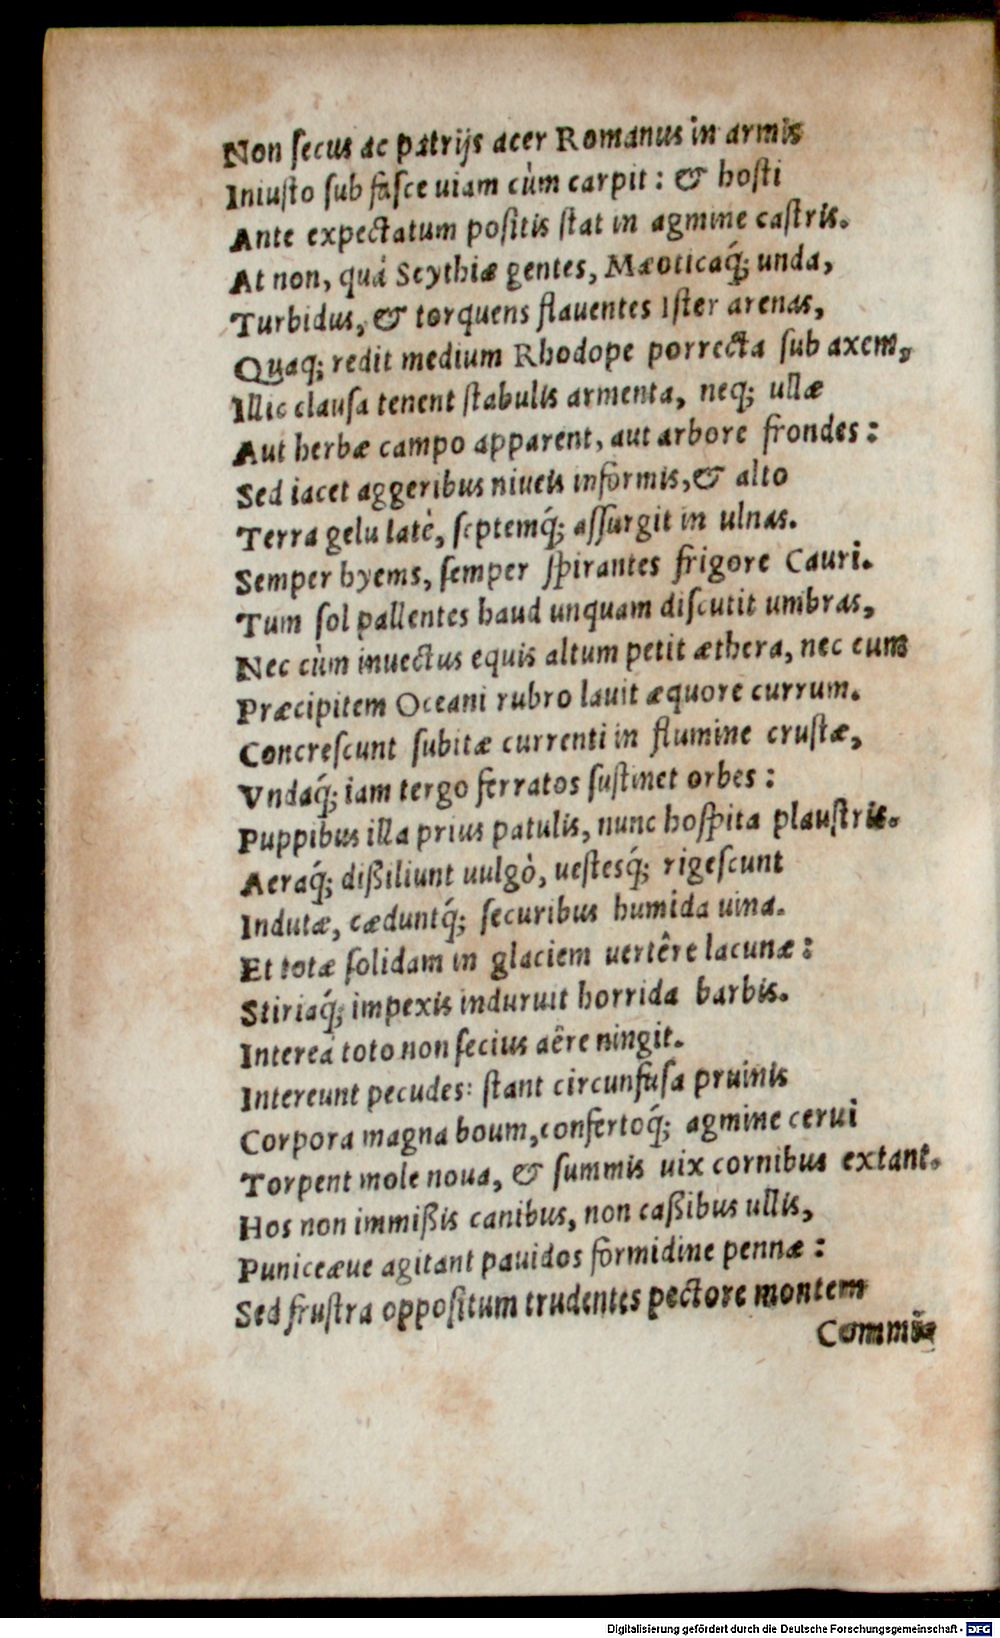 Non ſecus ac patrijs acer Romanus in armis
Iniuſto ſub faſce uiam cùm carpit: & hoſti
Ante expectatum poſitis ſtat in agmine caſtris.
At non, quà Scythiæ gentes, Mæoticaq́; unda,
Turbidus, & torquens flauentes Iſter arenas,
Quaq; redit medium Rhodope porrecta ſub axem,
Illic clauſa tenent ſtabulis armenta, neq; ullæ
Aut herbæ campo apparent, aut arbore frondes:
Sed iacet aggeribus niueis informis, & alto
Terra gelu latè, ſeptemq́; aſſurgit in ulnas.
Semper hyems, ſemper ſpirantes frigore Cauri.
Tum ſol pallentes haud unquam diſcutit umbras,
Nec cùm inuectus equis altum petit æthera, nec cum
Præcipitem Oceani rubro lauit æquore currum.
Concreſcunt ſubitæ currenti in flumine cruſtæ,
Vndaq́; iam tergo ferratos ſuſtinet orbes:
Puppibus illa prius patulis, nunc hoſpita plauſtris.
Aeraq́; dißiliunt uulgò, ueſtesq́; rigeſcunt
Indutæ, cæduntq́; ſecuribus humida uina.
Et totæ ſolidam in glaciem uertêre lacunæ:
Stiriaq́; impexis induruit horrida barbis.
Intereà toto non ſecius aêre ningit.
Intereunt pecudes: ſtant circunfuſa pruinis
Corpora magna boum, confertoq́; agmine cerui
Torpent mole noua, & ſummis uix cornibus extant.
Hos non immißis canibus, non caßibus ullis,
Puniceæue agitant pauidos formidine pennæ:
Sed fruſtra oppoſitum trudentes pectore montem
Digitalisierung gefördert durch die Deutsche Forschungsgemeinschaft - DFG